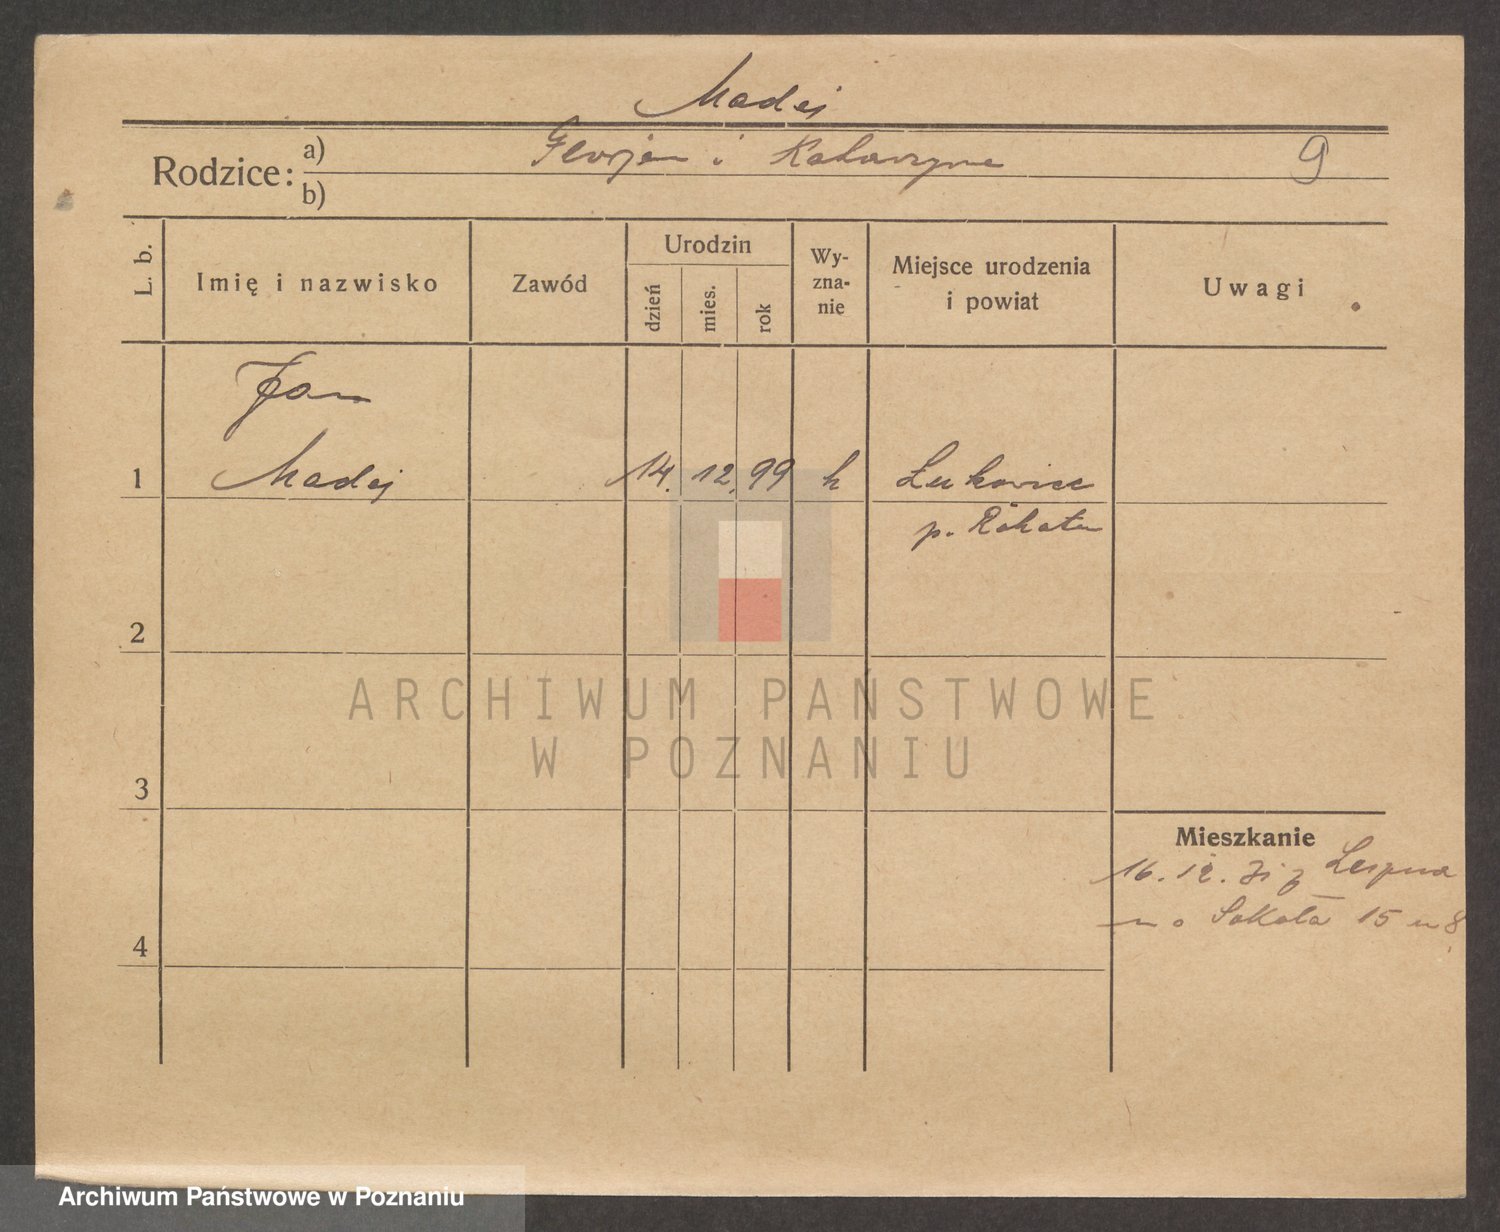 Madej
Rodzice: a) Florjan i Katarzyna 9
b)
L. b.
Imię i nazwisko
Zawód
Urodzin
dzień
mies.
rok
Wy-
zna-
nie
Miejsce urodzenia
i powiat
Uwagi
Jan
1 Madej 14. 12. 99 k Łukowice
p.
2
ARCHIWUM PAŃSTWOWE
W POZNANIU
3
Mieszkanie
16. 12. 31 z
Sokoła 15 m 8
4
Archiwum Państwowe w Poznaniu